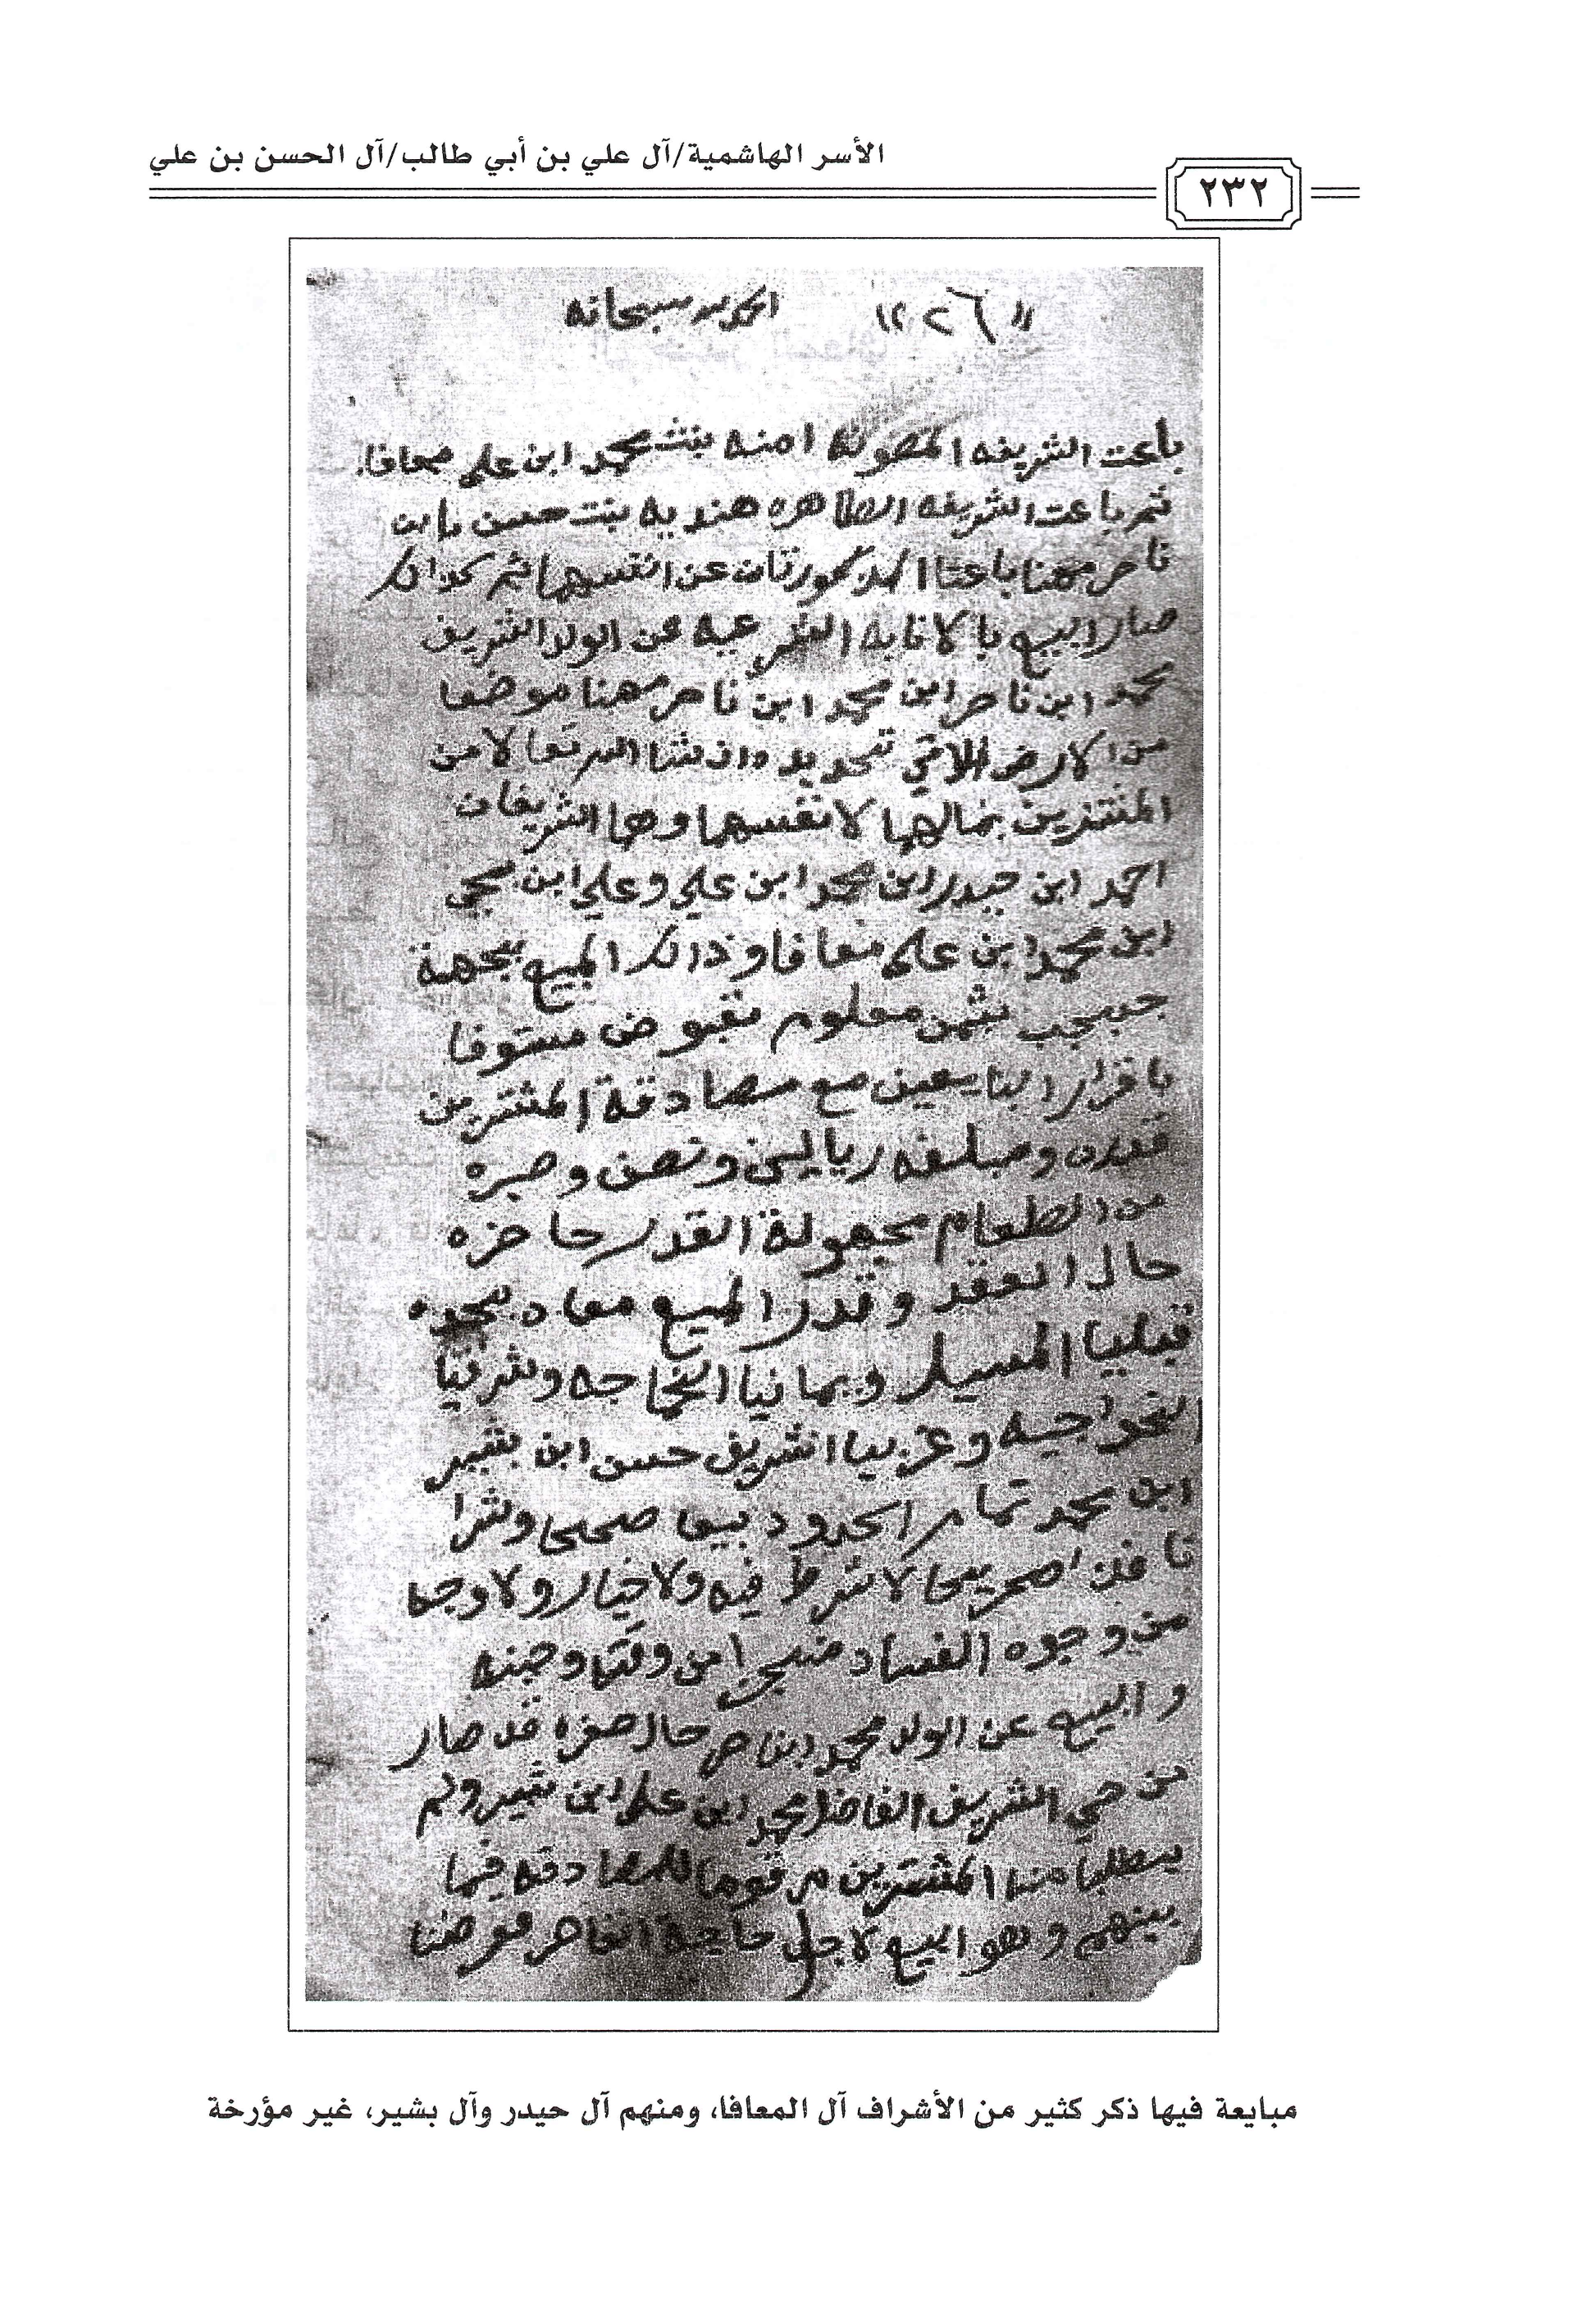 الأسر الهاشمية/آل علي بن أبي طالب/آل الحسن بن علي
٢٣٢
٢٦
الحمد لله سبحانه
باعت الشريفه المصونه امنه بنت محمد ابن علي معافا
ثم باعت الشريفه الطاهره هنديه بنت حسن ابن
ناصر مهنا باعتا المذكورتان عن انفسهما ثم كذالك
صار البيع بالانابه الشرعيه عن الولد الشريف
محمد ابن ناصر ابن محمد ابن ناصر مهنا موضعا
من الارض الاتي تحديده ان شاء الله تعالا من
المشتريين بمالهما لانفسهما وهما الشريفان
احمد ابن حيدر ابن محمد ابن علي وعلي ابن
ابن محمد ابن علي معافا وذالك المبيع بجهة
بثمن معلوم مقبوض مستوفا
باقرار البايعين مع مصادقة المشتريين
قدره ومبلغه ريالين ونصف وصبره
من الطعام مجهولة القدر حاضره
حال العقد وقدر المبيع معاد يحده
قبليا المسيل ويمانيا وشرقيا
وغربيا الشريف حسن ابن بشير
ابن محمد تمام الحدود بيعا صحيحا وشرا
نافذا صريحا لا شرط فيه ولا خيار ولا وجها
من وجوه الفساد من وقته وحينه
والبيع عن الولد محمد ابن ناصر حال صغره قد صار
من حي الشريف الفاضل محمد ابن علي ابن بشير ولم
يطلبا منا المشتريين مرقوما للمصادقه فيما
بينهم وهو البيع لاجل حاجة القاصر
مبايعة فيها ذكر كثير من الأشراف آل المعافا، ومنهم آل حيدر وآل بشير، غير مؤرخة